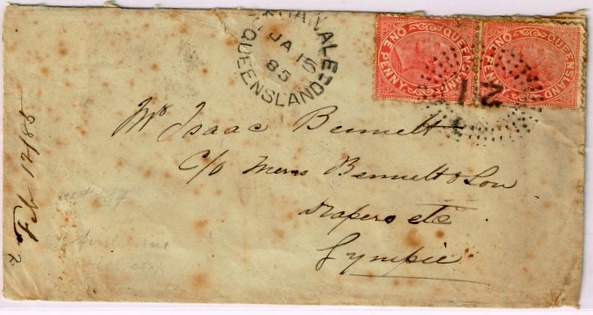 JA 15
85
QUEENSLAND
QUEENSLAND
ONE PENNY
QUEENSLAND
ONE PENNY
Mr Isaac Bennett
C/o Messrs Bennett & Son
Drapers etc
Gympie
Feb 12/85